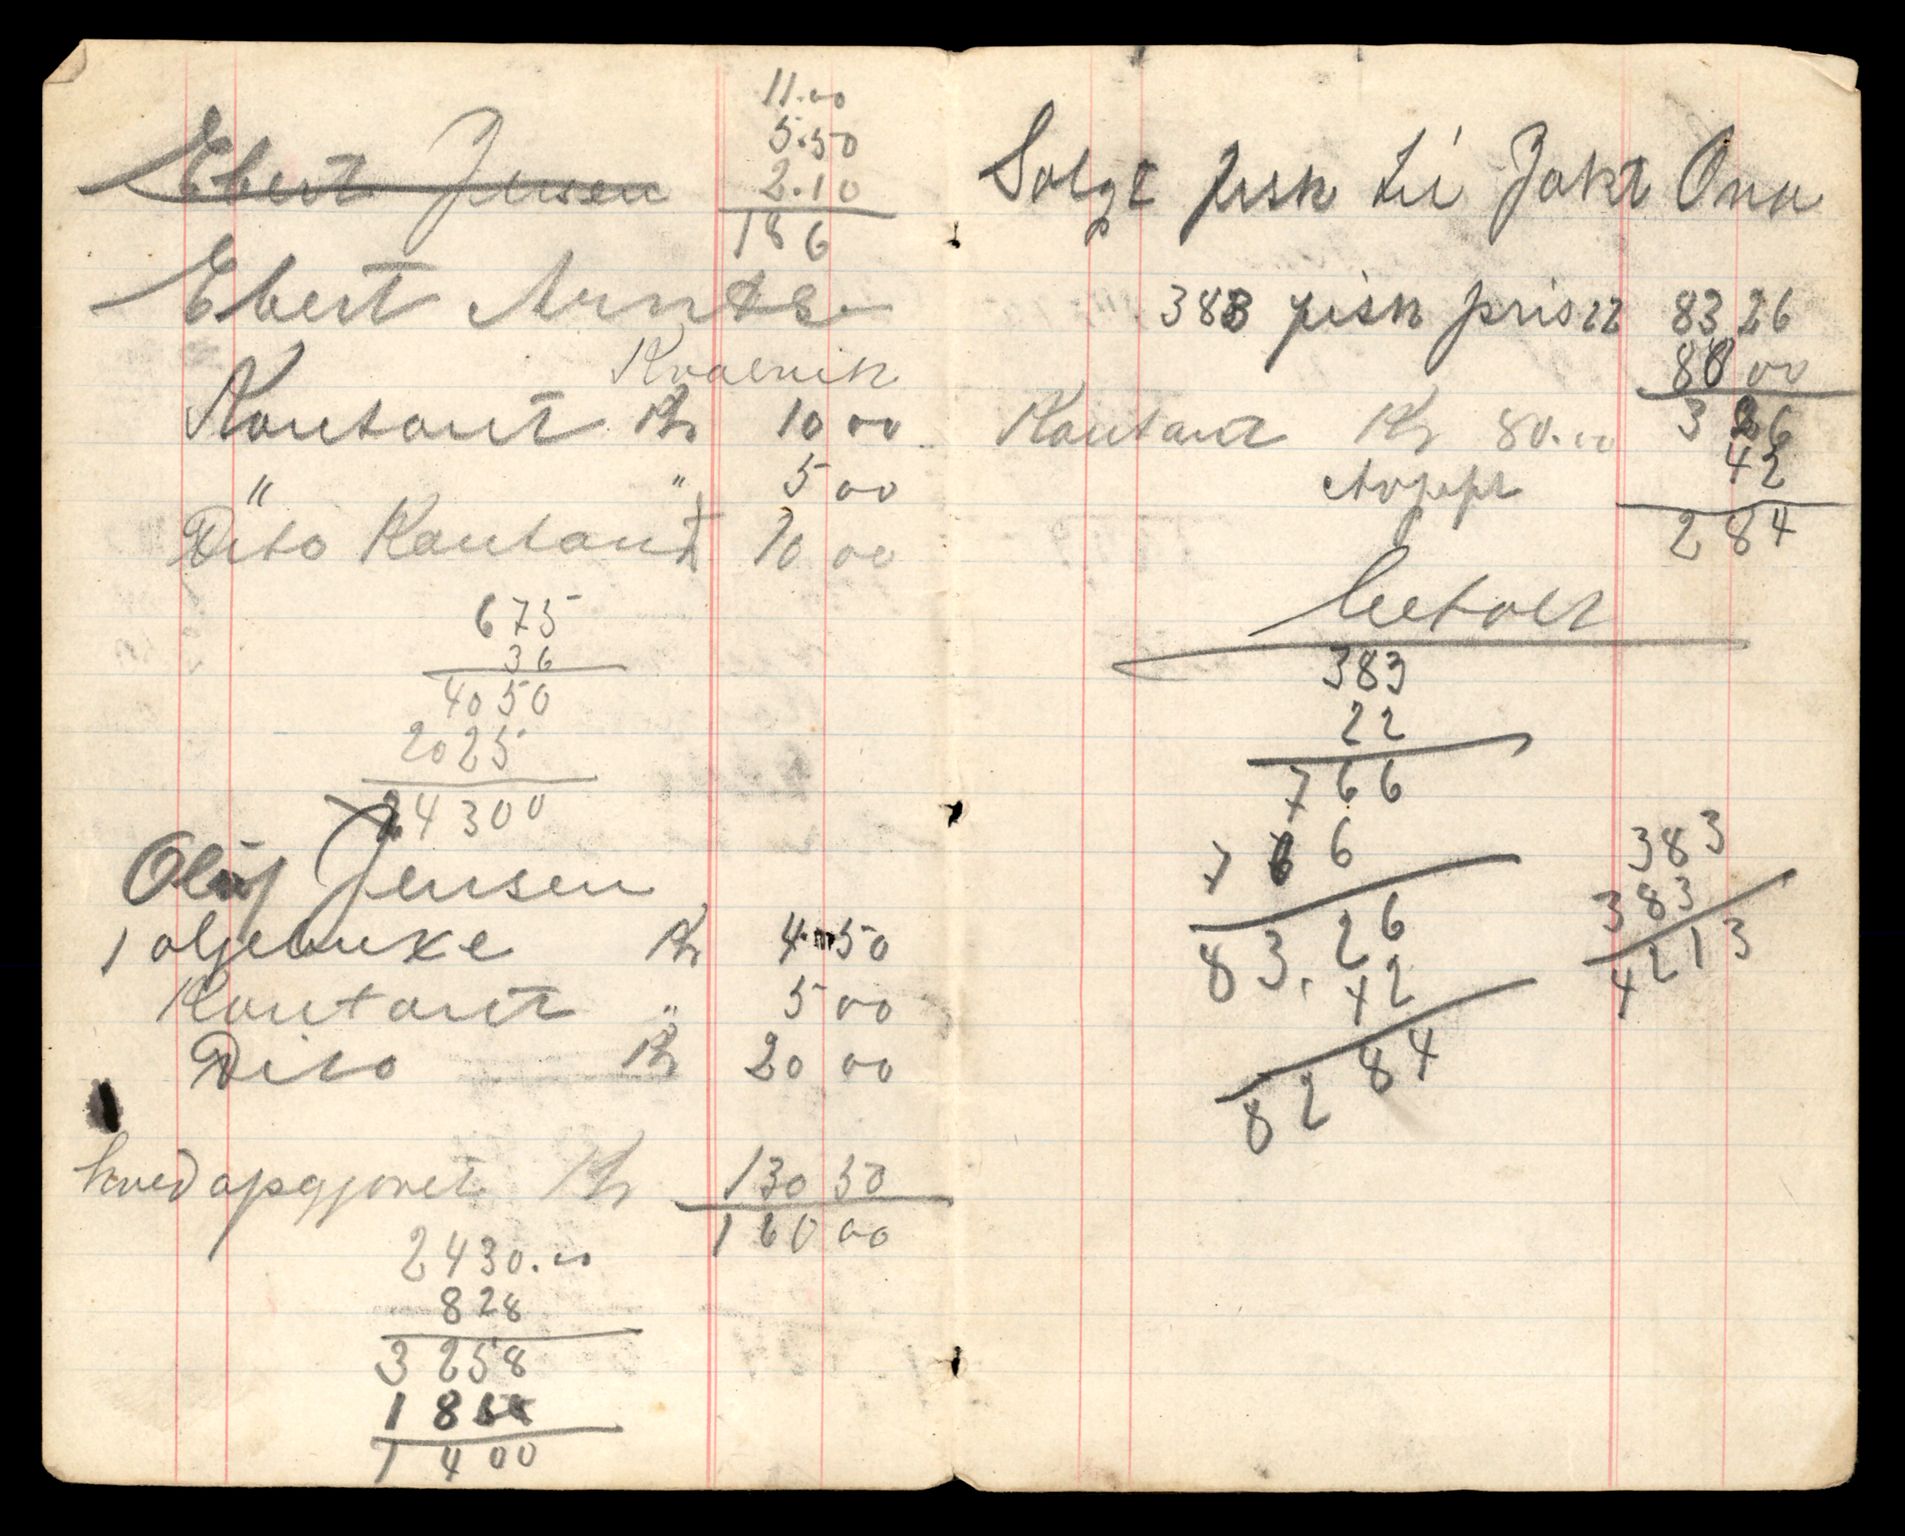 11.00
5.50
Ebert Jensen 2.10
186
Ebert Arntz
Kvalvik
Kontant Kr 10 00
" " 5 00
Dito Kontant 10 00
675
36
4050
2025
24300
Olaf Jensen
1 oljebuxe Kr 4.50
Kontant " 5 00
Dito Kr 20 00
hved opgjoret Kr 130 50
160 00
2430.00
828
3258
18
1400
Solgt fisk til Jakt Ona
383 fisk pris 22 83 26
80 00
Kontant Kr 80.00 3 26
42
2 84
betalt
383
22
766
766
83.26
42
82 84
383
383
4213